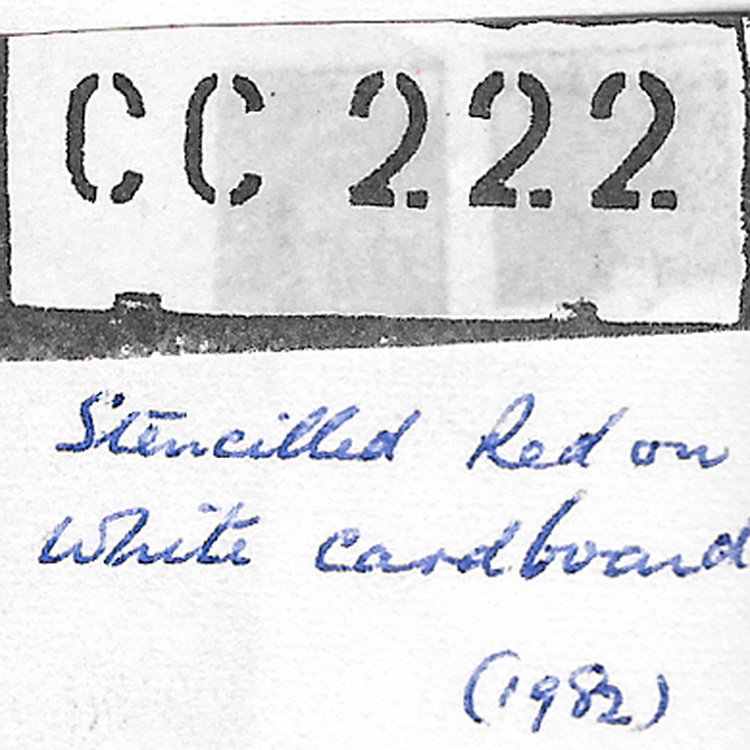 CC 222
Stencilled Red on
White cardboard
(1982)